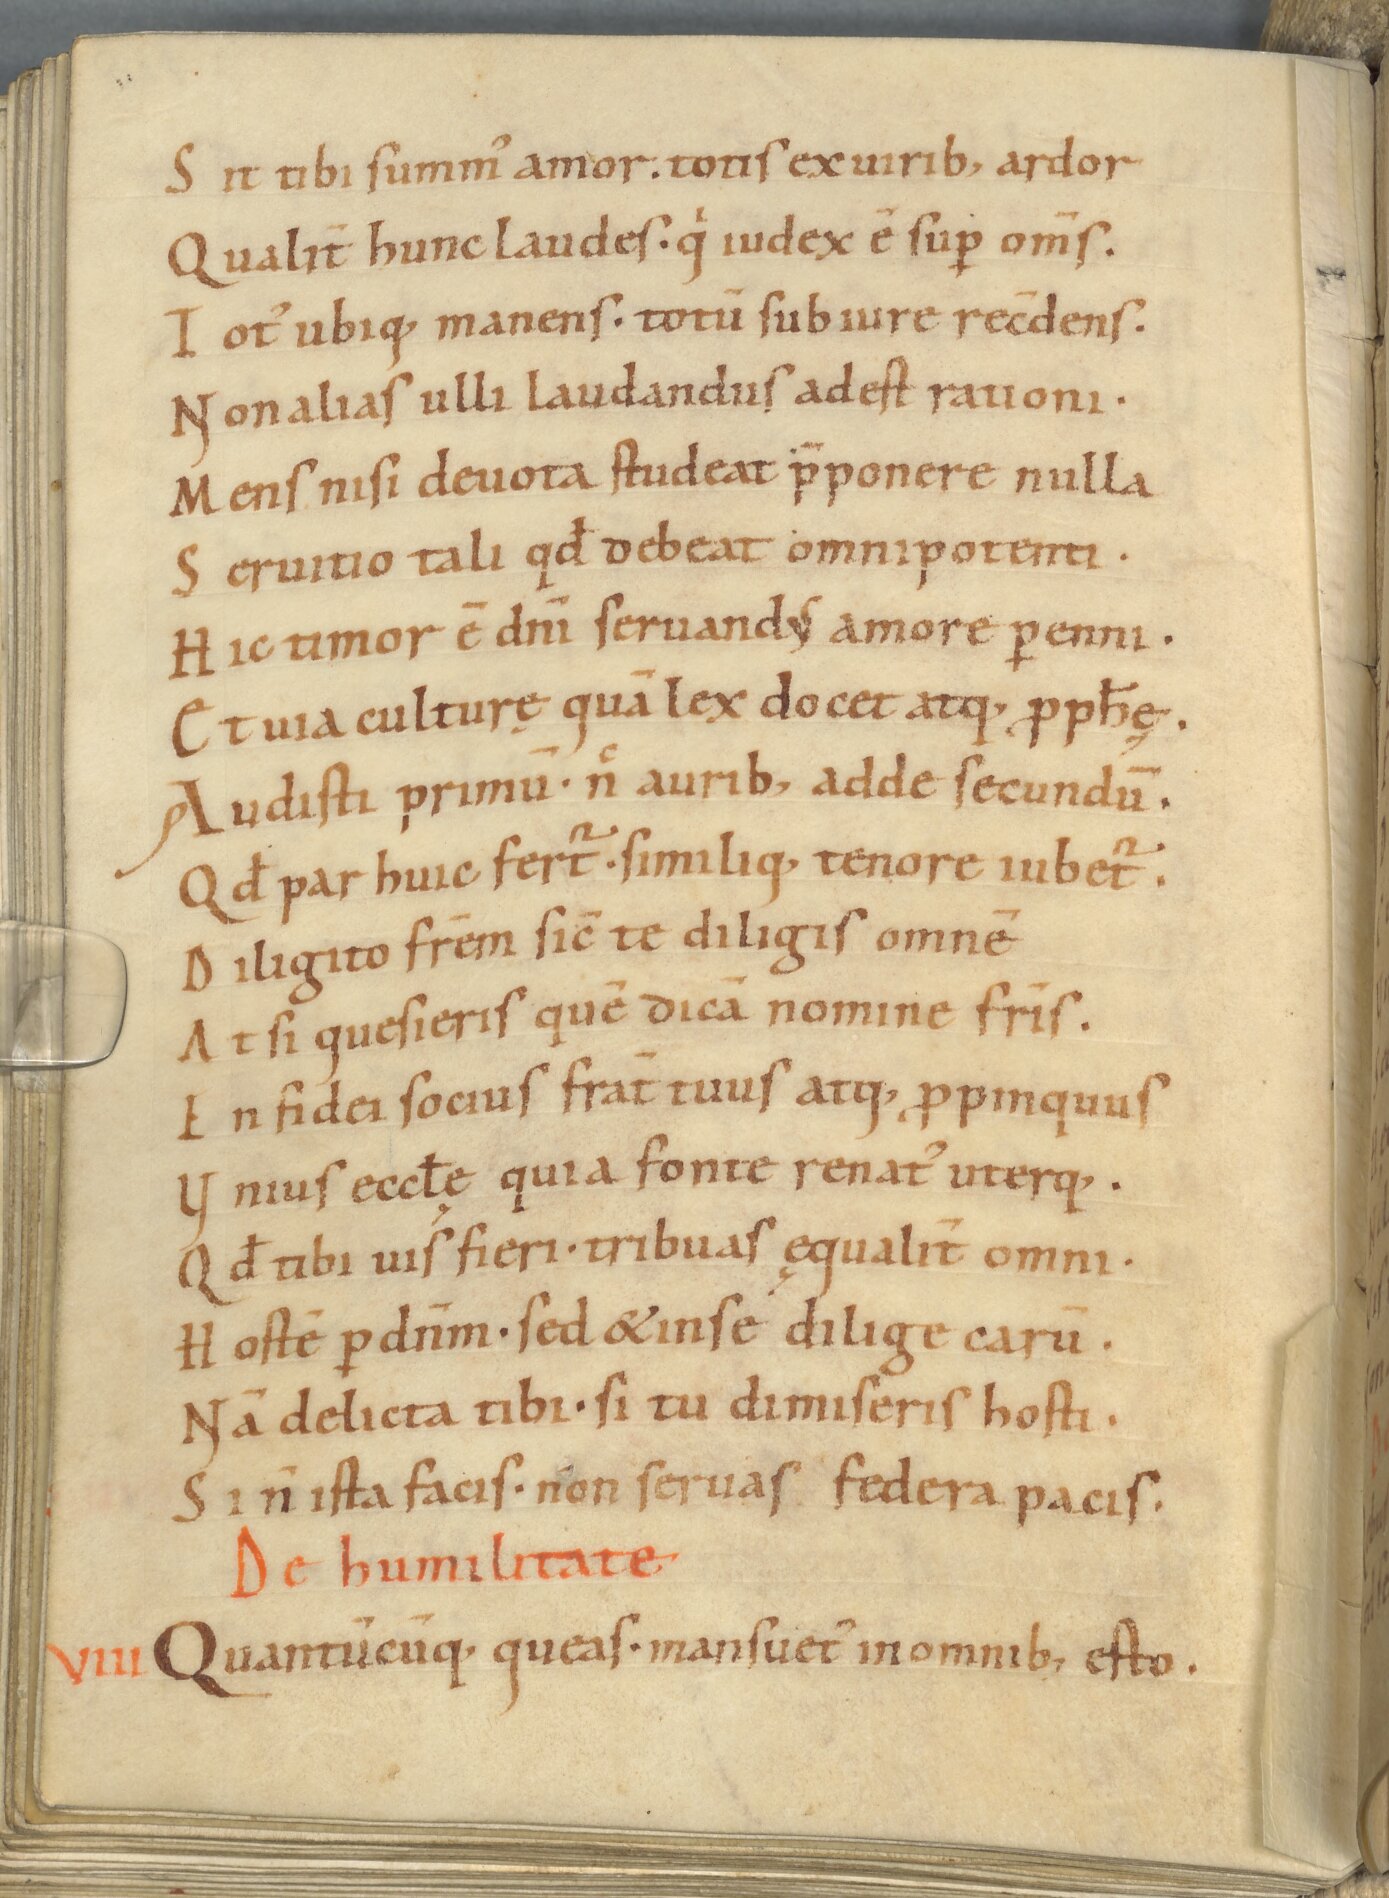 Sit tibi summ᾽ amor. totis ex uirib, ardor
Qualit̄ hunc laudes. qͥ iudex ē sup̄ om̄s.
Tot᾽ ubiq, manens. totū sub iure rec̄dens.
Non alias ulli laudandus adest rationi.
Mens nisi deuota studeat p̄ponere nulla
Seruitio tali qđ debeat omnipotenti.
Hic timor ē dn̄i seruandus amore ꝑenni.
Et uia culturę quā lex docet atq, ꝓph̄ę.
Audisti primū. nͨ aurib, adde secundū.
Qđ par huic fert᷑. similiq, tenore iubet᷑.
Diligito fr̄em sic̄ te diligis omnē
At si quesieris quē dicā nomine fr̄is.
En fidei socius frat̄ tuus atq, ꝓpinquus
Vnius eccl̄ę quia fonte renat᾽ uterq,.
Qđ tibi uis fieri. tribuas ęqualit̄ omni.
Hostē ꝑ dn̄m. sed & inse dilige carū.
Nā delicta tibi. si tu dimiseris hosti.
Si n̄ ista facis. non seruas federa pacis.
De humilitate
VIII Quantūcūq, queas. mansuet᾽ in omnib, esto.